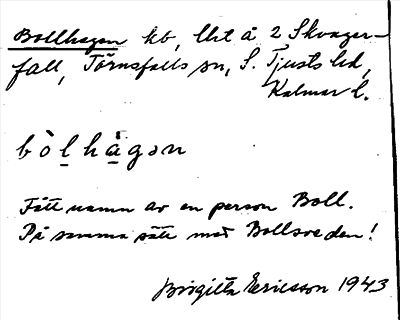 Bollhagen hb, lht å 2 Skvager-
fall, Törnsfalls sn, S. Tjusts hd,
Kalmar l.
bòlhàgən
Fått namn av en person Boll.
På samma sätt med Bollsveden!
Birgitta Ericsson 1943